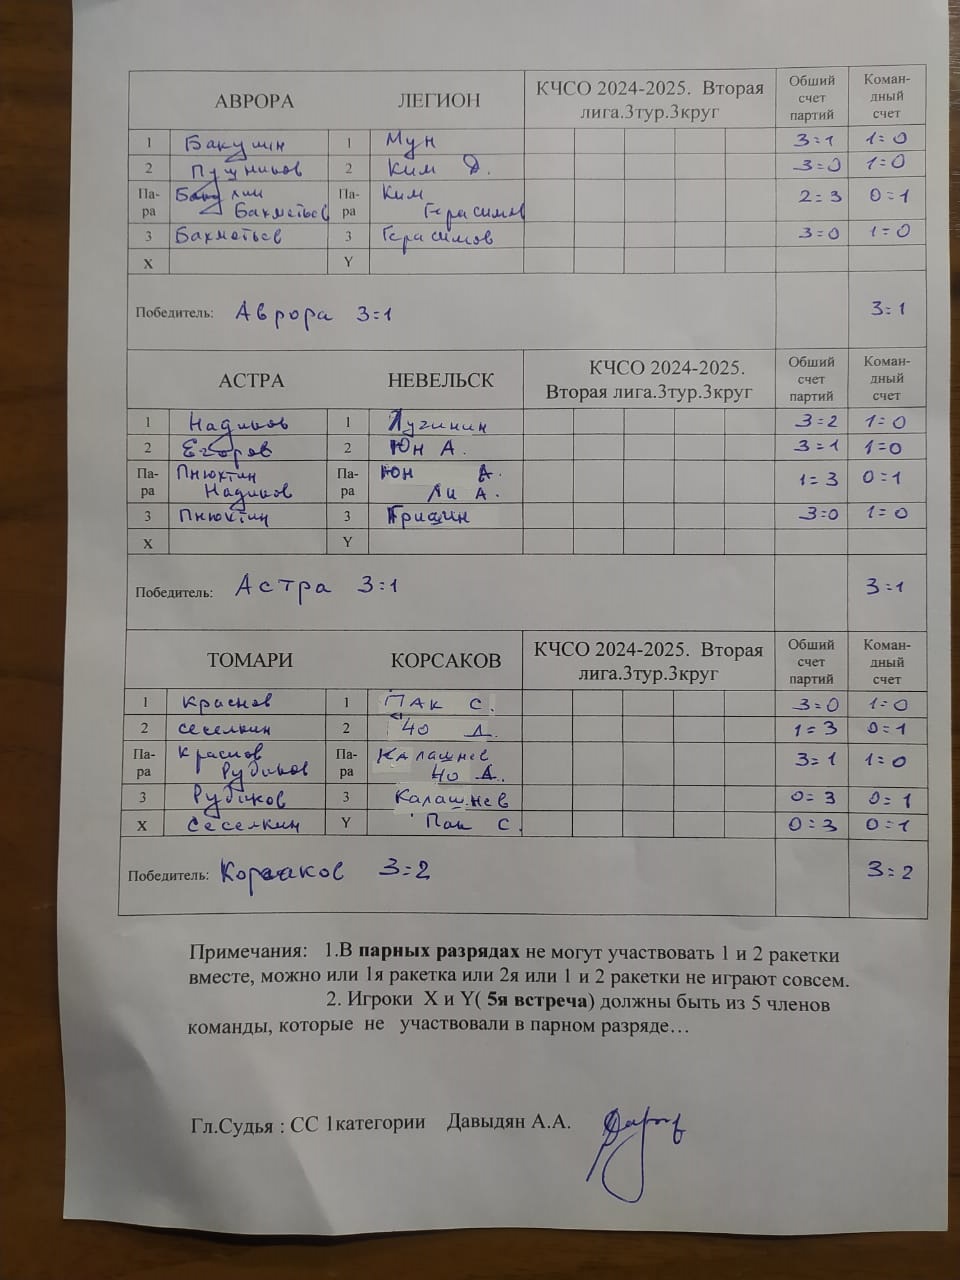 АВРОРА ЛЕГИОН КЧСО 2024-2025. Вторая лига.3тур.3круг Обший счет партий Коман-дный счет
1 Бакулин 1 Мун 3=1 1=0
2 Пушников 2 Ким Д. 3=0 1=0
Па-ра Бакулин Бахметьев Па-ра Ким Герасимов 2=3 0=1
3 Бахметьев 3 Герасимов 3=0 1=0
X Y
Победитель: Аврора 3=1 3=1
АСТРА НЕВЕЛЬСК КЧСО 2024-2025. Вторая лига.3тур.3круг Обший счет партий Коман-дный счет
1 Надиков 1 Лугинин 3=2 1=0
2 Егоров 2 Юн А. 3=1 1=0
Па-ра Пнюхтин Надиков Па-ра Юн А. Ли А. 1=3 0=1
3 Пнюхтин 3 Гришин 3=0 1=0
X Y
Победитель: Астра 3=1 3=1
ТОМАРИ КОРСАКОВ КЧСО 2024-2025. Вторая лига.3тур.3круг Обший счет партий Коман-дный счет
1 Краснов 1 ПАК С. 3=0 1=0
2 Сеселкин 2 ЧО Д. 1=3 0=1
Па-ра Краснов Рубиков Па-ра Калашнев ЧО Д. 3=1 1=0
3 Рубиков 3 Калашнев 0=3 0=1
X Сеселкин Y Пак С. 0=3 0=1
Победитель: Корсаков 3=2 3=2
Примечания: 1.В парных разрядах не могут участвовать 1 и 2 ракетки
вместе, можно или 1я ракетка или 2я или 1 и 2 ракетки не играют совсем.
2. Игроки X и Y( 5я встреча) должны быть из 5 членов
команды, которые не участвовали в парном разряде…
Гл.Судья : СС 1категории Давыдян А.А.